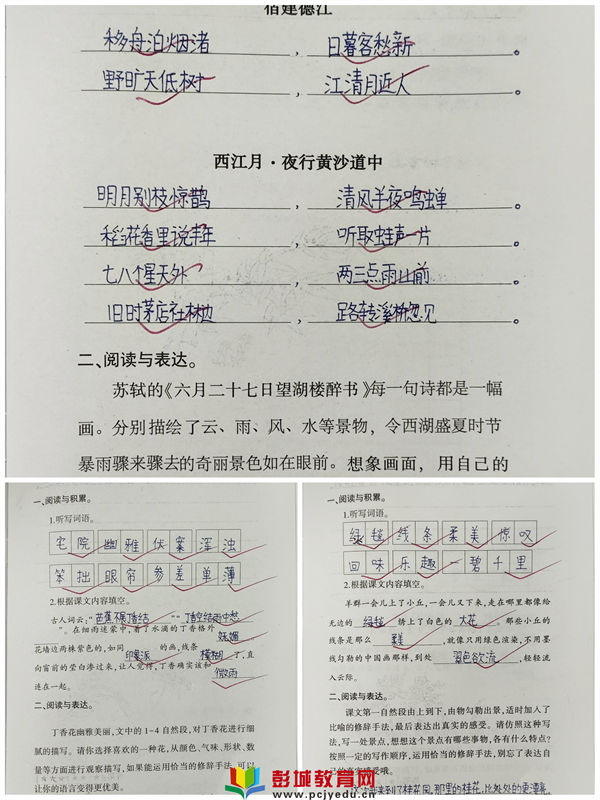 宿建德江
移舟泊烟渚，日暮客愁新。
野旷天低树，江清月近人。
西江月·夜行黄沙道中
明月别枝惊鹊，清风半夜鸣蝉。
稻花香里说丰年，听取蛙声一片。
七八个星天外，两三点雨山前。
旧时茅店社林边，路转溪桥忽见。
二、阅读与表达。
苏轼的《六月二十七日望湖楼醉书》每一句诗都是一幅
画。分别描绘了云、雨、风、水等景物，令西湖盛夏时节
暴雨骤来骤去的奇丽景色如在眼前。想象画面，用自己的
一、阅读与积累。
1.听写词语。
宅院 幽雅 伏案 浑浊
笨拙 眼帘 参差 单薄
2.根据课文内容填空。
古人词云：“芭蕉不展丁香结”“丁香空结雨中愁
”。在细雨迷蒙中，着了水滴的丁香格外妩媚
花墙边两株紫色的，如同印象派的画，线条模糊了，直
向窗前的莹白渗过来，让人觉得，丁香确实该和微雨
连在一起。
二、阅读与表达。
丁香花幽雅美丽，文中的1-4自然段，对丁香花进行细
腻的描写。请你选择喜欢的一种花，从颜色、气味、形状、数
量等方面进行观察描写，如果能运用恰当的修辞手法，可以
让你的语言变得更优美。
一、阅读与积累。
1.听写词语。
绿毯 线条 柔美 惊叹
回味 乐趣 一碧千里
2.根据课文内容填空。
羊群一会儿上了小丘，一会儿又下来，走在哪里都像给
无边的绿毯绣上了白色的大花。那些小丘的
线条是那么柔美，就像只用绿色渲染，不用墨
线勾勒的中国画那样，到处翠色欲流，轻轻流
入云际。
二、阅读与表达。
课文第一自然段由上到下，由物勾勒出景，适时加入了
比喻的修辞手法，最后表达出真实的感受。请仿照这种写
法，写一处景点，想想这个景点有哪些事物，各有什么特点？
按照一定的写作顺序，运用恰当的修辞手法，别忘了表达自
己的真实感受哦。
来到了桂花园，那里的桂花，比处处的更漂亮
彭城教育网
www.pcjyedu.cn